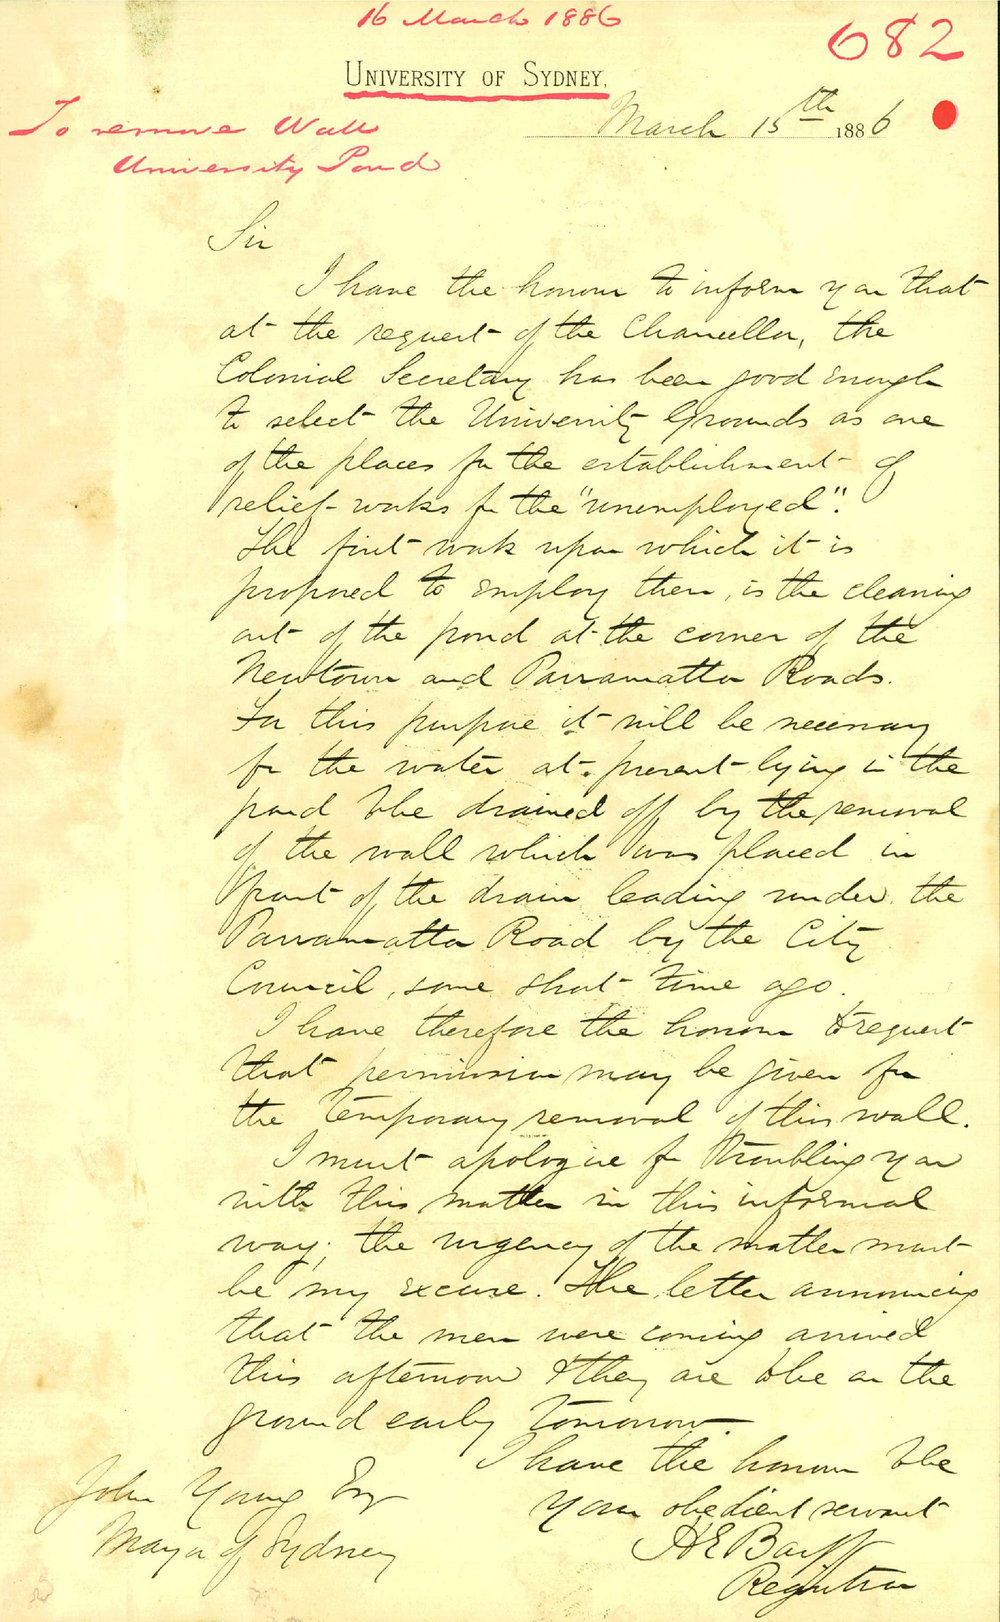 16 March 1886
682
UNIVERSITY OF SYDNEY.
To remove Wall
University Pond
March 15th 1886
Sir
I have the honour to inform you that
at the request of the Chancellor, the
Colonial Secretary has been good enough
to select the University Grounds as one
of the places for the establishment of
relief works for the "unemployed".
The first work upon which it is
proposed to employ them, is the cleaning
out of the pond at the corner of the
Newtown and Parramatta Roads.
For this purpose it will be necessary
for the water at present lying in the
pond to be drained off by the removal
of the wall which was placed in
front of the drain leading under the
Parramatta Road by the City
Council, some short time ago.
I have therefore the honour to request
that permission may be given for
the temporary removal of this wall.
I must apologise for troubling you
with this matter in this informal
way; the urgency of the matter must
be my excuse. The letter announcing
that the men were coming arrived
this afternoon & they are to be on the
ground early tomorrow.
I have the honour to be
your obedient servant
H E Barff
Registrar
John Young Esq
Mayor of Sydney